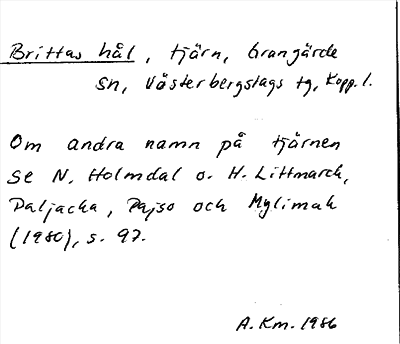 Brittas hål, tjärn, Grangärde
sn, Västerbergslags tg, Kopp. l.
Om andra namn på tjärnen
se N. Holmdal o. H. Littmarck,
Paljacka, Pajso och Mylimak
(1980), s. 97.
A. Km. 1986